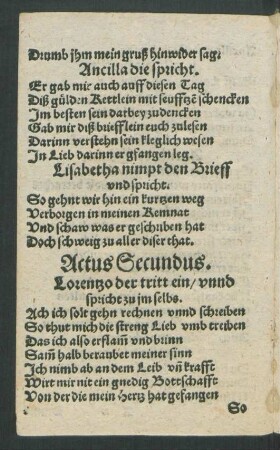 Drumb jhm mein gruß hinwider sag.
Ancilla die spricht.
Er gab mir auch auff diesen Tag
Diß gülden Kettlein mit seuffzē schencken
Im besten sein darbey zudencken
Gab mir diß briefflein euch zulesen
Darinn verstehn sein kleglich wesen
In Lieb darinn er gfangen leg.
Lisabetha nimpt den Brieff
vnd spricht.
So gehnt wir hin ein kurtzen weg
Verborgen in meinen Kemnat
Vnd schaw was er geschriben hat
Doch schweig zu aller diser that.
Actus Secundus.
Lorentzo der tritt ein / vnnd
spricht zu jm selbs.
Ach ich solt gehn rechnen vnnd schreiben
So thut mich die streng Lieb vmb treiben
Das ich also erflam̄ vnd brinn
Sam̄ halb beraubet meiner sinn
Ich nimb ab an dem Leib vn̄ krafft
Wirt mir nit ein gnedig Bottschafft
Von der die mein Hertz hat gefangen
So